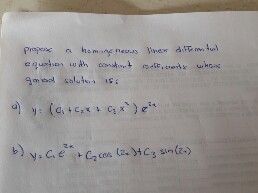 propose a homogeneous linear differential
equation with constant coefficients whose
general solution is:
a) y = (C₁ + C₂x + C₃x²) e²ˣ
b) y = C₁e²ˣ + C₂ cos (2x) + C₃ sin (2x)